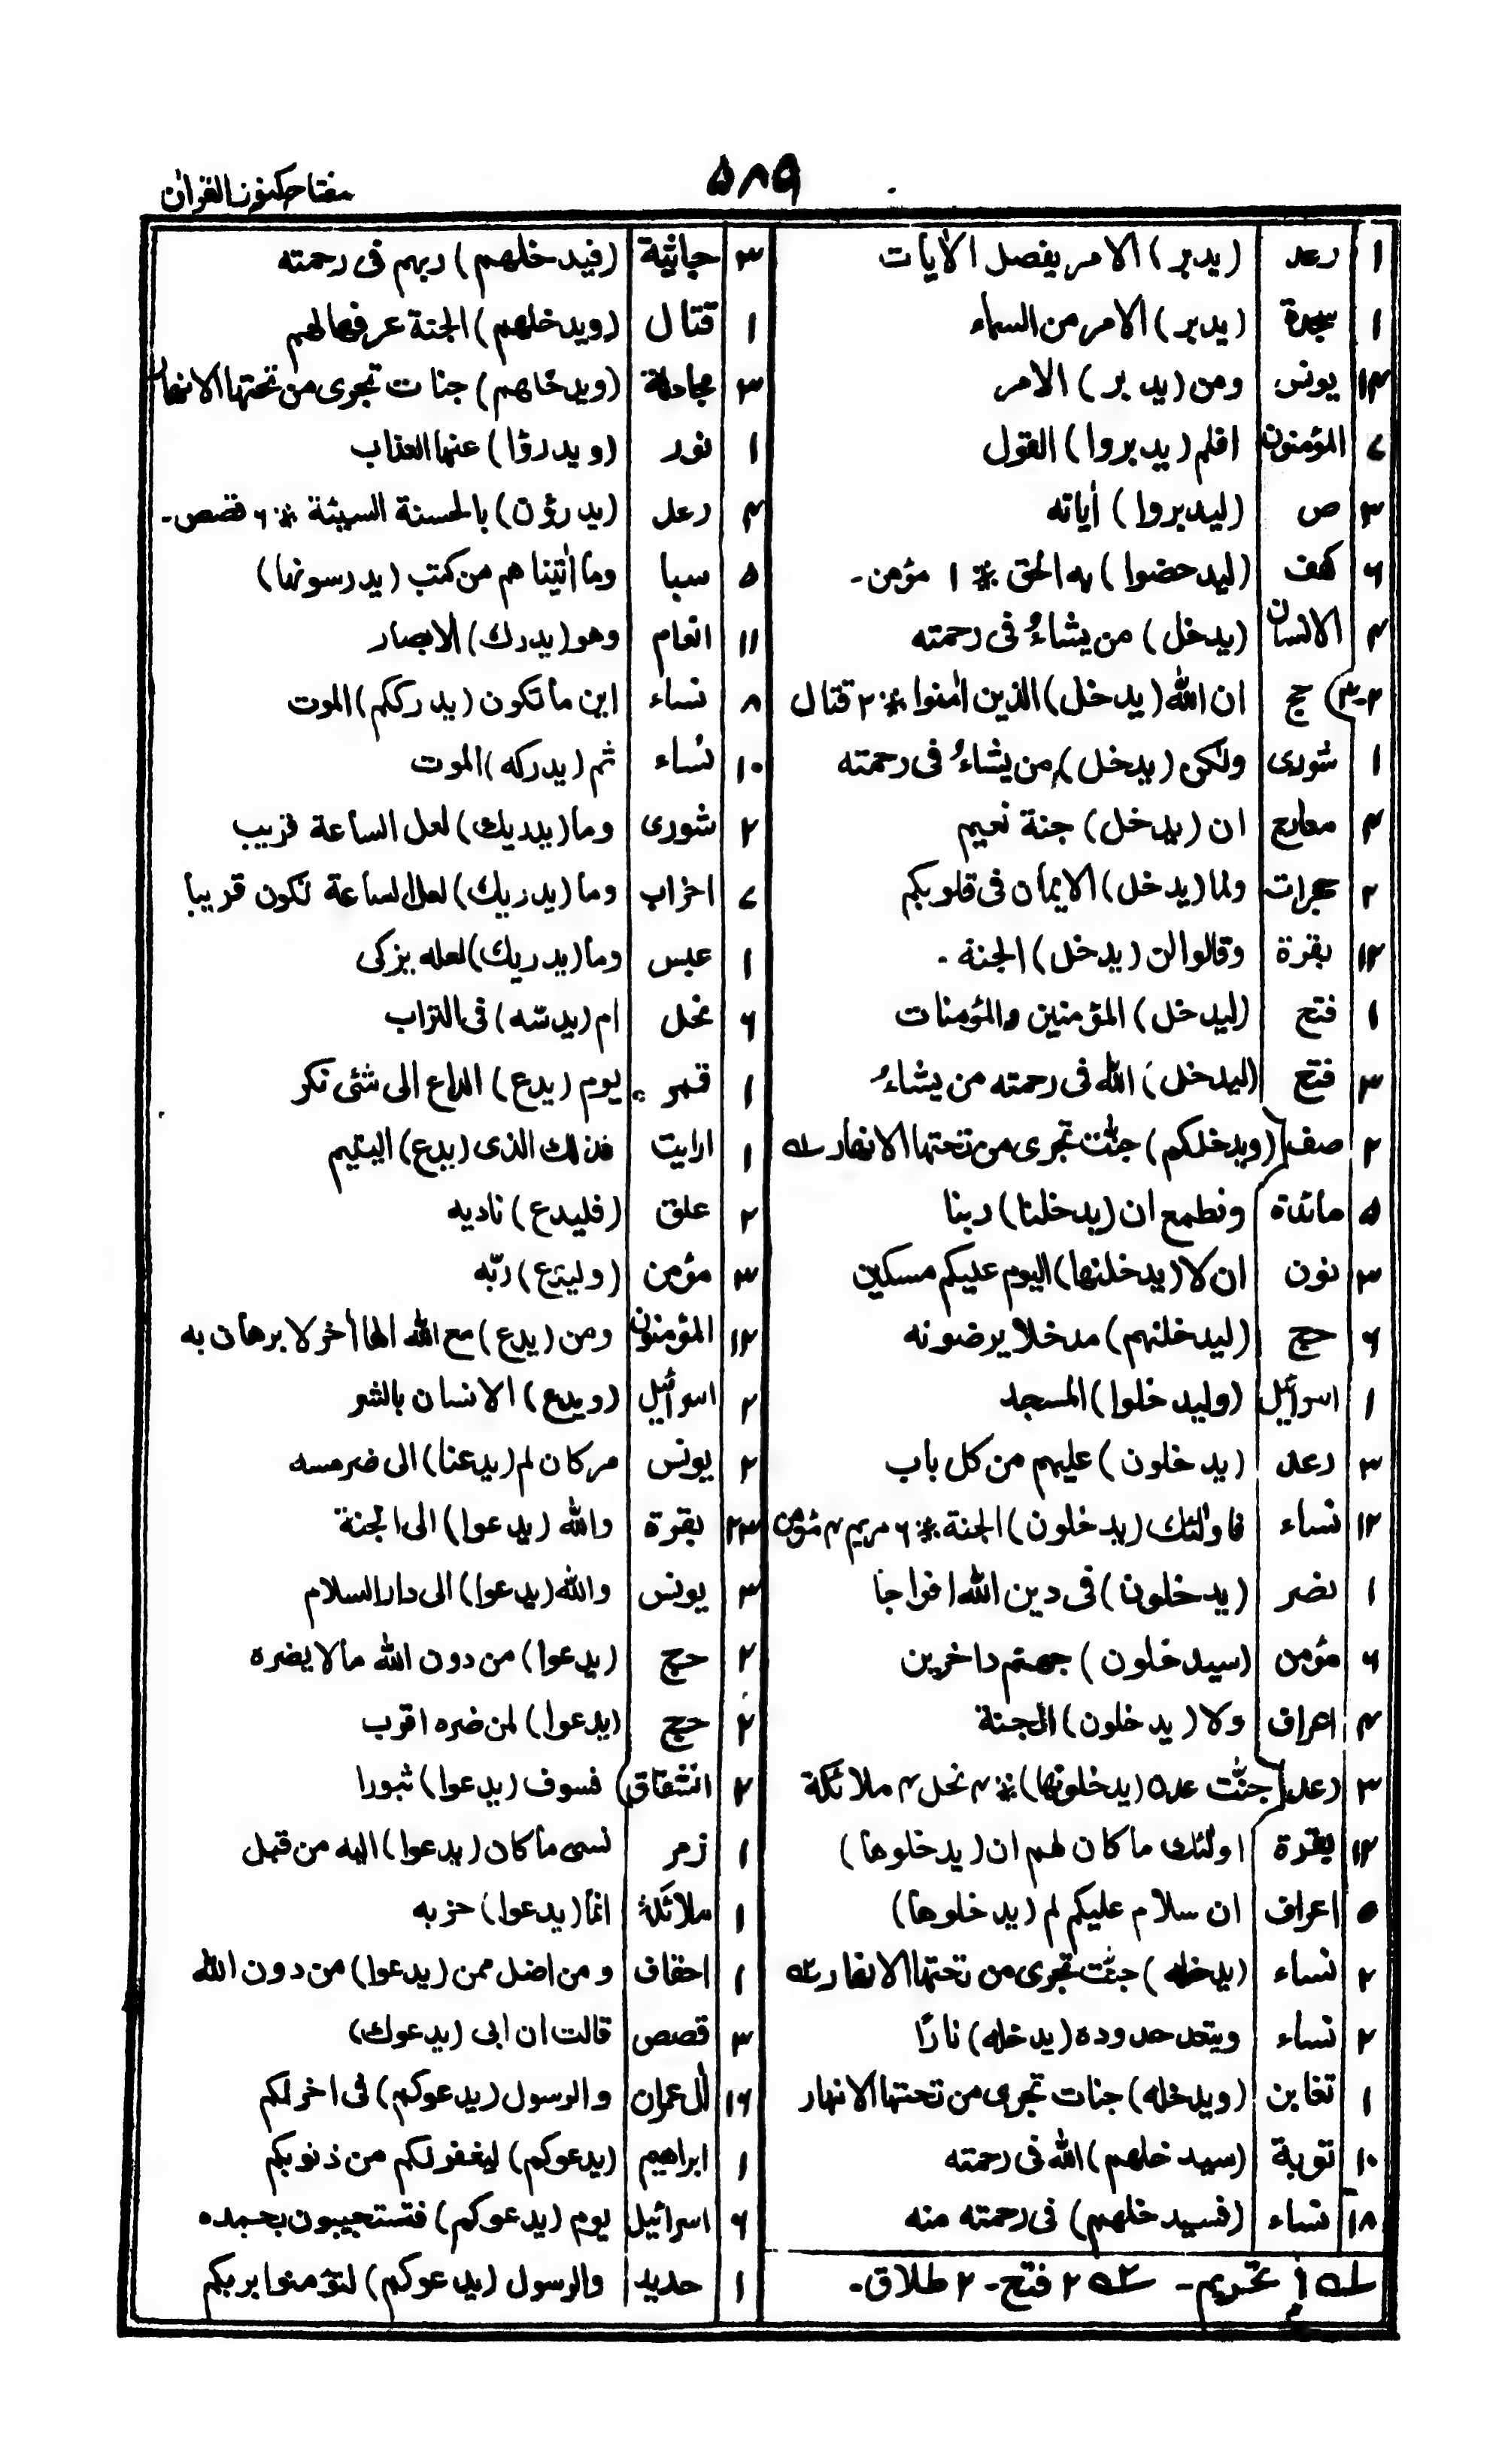 ۵۸۹
مفتاح کنوز القرآن
۱ رعد (يدبر) الامر يفصل الاٰيات
۱ سجدة (يدبر) الامر من السماء
۱۴ يونس ومن (يدبر) الامر
۷ المؤمنون افلم (يدبروا) القول
۳ ص (ليدبروا) اٰياته
۶ كهف (ليدحضوا) به الحق ※ ۱ مؤمن۔
۲ الانسان (يدخل) من يشاءُ فى رحمته
۲-۳ حج ان الله (يدخل) الذين اٰمنوا ※ ۲ قتال
۱ شورى ولكن (يدخل) من يشاءُ فى رحمته
۲ معارج ان (يدخل) جنة نعيم
۲ حجرات ولما (يدخل) الايمان فى قلوبكم
۱۲ بقرة وقالوا لن (يدخل) الجنة ۔
۱ فتح (ليدخل) المؤمنين والمؤمنات
۳ فتح (ليدخل) الله فى رحمته من يشاءُ
۲ صف (ويدخلكم) جنّٰت تجرى من تحتها الانهار ؎۱
۵ مائدة ونطمع ان (يدخلنا) ربنا
۳ نون ان لا (يدخلنها) اليوم عليكم مسكين
۶ حج (ليدخلنهم) مدخلا يرضونه
۱ اسرائيل (وليدخلوا) المسجد
۳ رعد (يدخلون) عليهم من كل باب
۱۲ نساء فاولئك (يدخلون) الجنة ※ ۶ مريم ۴ مؤمن
۱ نصر (يدخلون) فى دين الله افواجا
۶ مؤمن (سيدخلون) جهنم داخرين
۴ اعراف ولا (يدخلون) الجنة
۳ رعد جنّٰت عدن (يدخلونها) ※ ۴ نحل ۴ ملائكة
۱۲ بقرة اولئك ما كان لهم ان (يدخلوها)
۵ اعراف ان سلام عليكم لم (يدخلوها)
۲ نساء (يدخله) جنّٰت تجرى من تحتها الانهار ؎۲
۲ نساء ويتعد حدوده (يدخله) نارًا
۱ تغابن (ويدخله) جنات تجرى من تحتها الانهار
۱۰ توبة (سيدخلهم) الله فى رحمته
۱۸ نساء (فسيدخلهم) فى رحمته منه
؎۱ ۲ تحريم۔ ؎۲ ۲ فتح۔ ۲ طلاق۔
۳ جاثية (فيدخلهم) ربهم فى رحمته
۱ قتال (ويدخلهم) الجنة عرفها لهم
۳ مجادلة (ويدخلهم) جنات تجرى من تحتها الانهار
۱ نور (ويدرؤا) عنها العذاب
۳ رعد (يدرؤن) بالحسنة السيئة ※ ۶ قصص۔
۵ سبا وما اٰتيناهم من كتب (يدرسونها)
۱۱ انعام وهو (يدرك) الابصار
۸ نساء اين ما تكون (يدرككم) الموت
۱۰ نساء ثم (يدركه) الموت
۲ شورى وما (يدريك) لعل الساعة قريب
۷ احزاب وما (يدريك) لعل الساعة تكون قريبا
۱ عبس وما (يدريك) لعله يزكى
۶ نحل ام (يدسّه) فى التراب
۱ قمر يوم (يدع) الداع الى شئى نكر
۱ ارايت فذلك الذى (يدع) اليتيم
۲ علق (فليدع) ناديه
۳ مؤمن (وليدع) ربّه
۱۲ المؤمنون ومن (يدع) مع الله الها اٰخر لا برهان به
۲ اسرائيل (ويدع) الانسان بالشر
۲ يونس مر كان لم (يدعنا) الى ضر مسه
۲۳ بقرة والله (يدعوا) الى الجنة
۳ يونس والله (يدعوا) الى دار السلام
۲ حج (يدعوا) من دون الله ما لا يضره
۲ حج (يدعوا) لمن ضره اقرب
۲ انشقاق فسوف (يدعوا) ثبورا
۱ زمر نسى ما كان (يدعوا) اليه من قبل
۱ ملائكة انما (يدعوا) حزبه
۱ احقاف ومن اضل ممن (يدعوا) من دون الله
۳ قصص قالت ان ابى (يدعوك)
۱۶ اٰل عمران والرسول (يدعوكم) فى اخراكم
۱ ابراهيم (يدعوكم) ليغفر لكم من ذنوبكم
۶ اسرائيل يوم (يدعوكم) فتستجيبون بحمده
۱ حديد والرسول (يدعوكم) لتؤمنوا بربكم